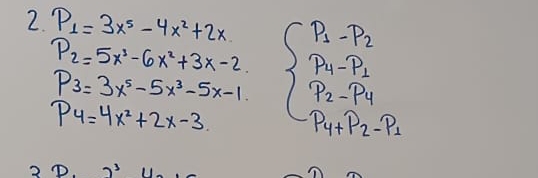 2. P₁ = 3x⁵ - 4x² + 2x.
P₂ = 5x³ - 6x² + 3x - 2.
P3 = 3x⁵ - 5x³ - 5x - 1.
P4 = 4x² + 2x - 3.
P₁ - P₂
P4 - P₁
P₂ - P4
P4 + P₂ - P₁